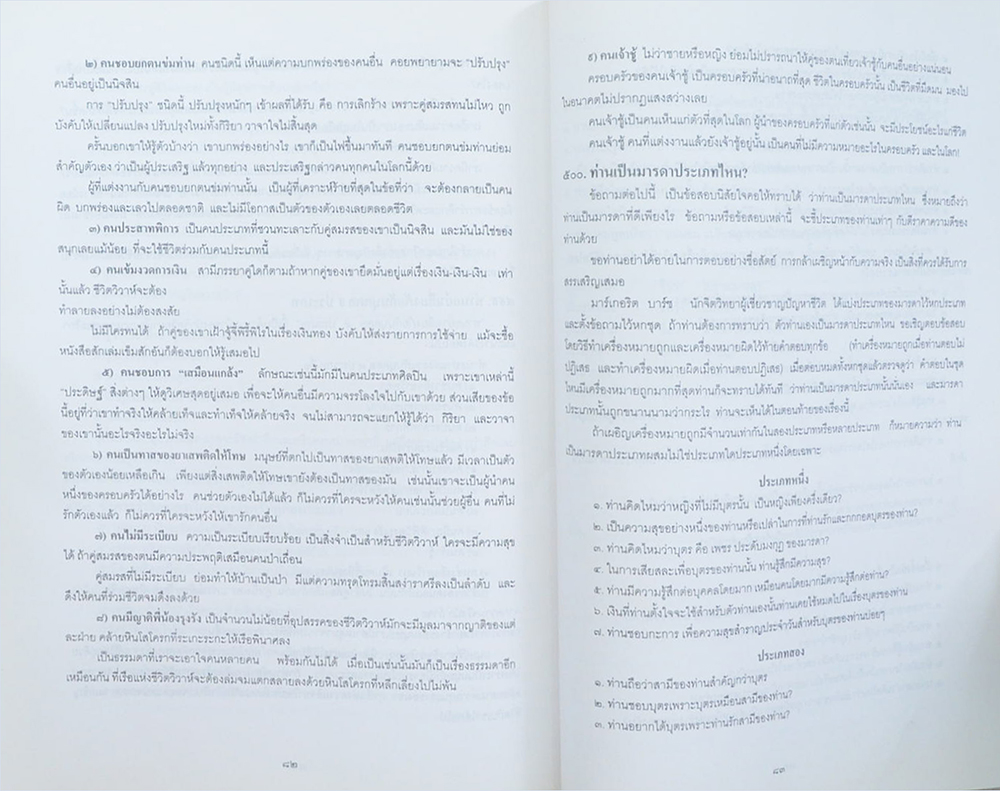 ๒) คนชอบยกตนข่มท่าน คนชนิดนี้ เห็นแต่ความบกพร่องของคนอื่น คอยพยายามจะ "ปรับปรุง"
คนอื่นอยู่เป็นนิจสิน
การ "ปรับปรุง" ชนิดนี้ ปรับปรุงหนักๆ เข้าผลที่ได้รับ คือ การเลิกร้าง เพราะคู่สมรสทนไม่ไหว ถูก
บังคับให้เปลี่ยนแปลง ปรับปรุงใหม่ทั้งกิริยา วาจาใจไม่สิ้นสุด
ครั้นบอกเขาให้รู้ตัวบ้างว่า เขาบกพร่องอย่างไร เขาก็เป็นไฟขึ้นมาทันที คนชอบยกตนข่มท่านย่อม
สำคัญตัวเอง ว่าเป็นผู้ประเสริฐ แล้วทุกอย่าง และประเสริฐกล่าวคนทุกคนในโลกนี้ด้วย
ผู้ที่แต่งงานกับคนชอบยกตนข่มท่านนั้น เป็นผู้ที่เคราะห์ร้ายที่สุดในข้อที่ว่า จะต้องกลายเป็นคน
ผิด บกพร่องและเลวไปตลอดชาติ และไม่มีโอกาสเป็นตัวของตัวเองเลยตลอดชีวิต
๓) คนประสาทพิการ เป็นคนประเภทที่ชวนทะเลาะกับคู่สมรสของเขาเป็นนิจสิน และมันไม่ใช่ของ
สนุกเลยแม้น้อย ที่จะใช้ชีวิตร่วมกับคนประเภทนี้
๔) คนเข้มงวดการเงิน สามีภรรยาคู่ใดก็ตามถ้าหากคู่ของเขายึดมันอยู่แต่เรื่องเงิน-เงิน-เงิน เท่า
นั้นแล้ว ชีวิตวิวาห์จะต้อง
ทำลายลงอย่างไม่ต้องสงสัย
ไม่มีใครทนได้ ถ้าคู่ของเขาเฝ้าจู้จี้พิรี้พิไรในเรื่องเงินทอง บังคับให้ส่งรายการการใช้จ่าย แม้จะซื้อ
หนังสือสักเล่มเข็มสักอันก็ต้องบอกให้รู้เสมอไป
๕) คนชอบการ "เสมือนแกล้ง" ลักษณะเช่นนี้มักมีในคนประเภทศิลปิน เพราะเขาเหล่านี้
"ประดิษฐ์" สิ่งต่างๆ ให้ดูวิเศษสุดอยู่เสมอ เพื่อจะให้คนอื่นมีความจรรโลงใจไปกับเขาด้วย ส่วนเสียของข้อ
นี้อยู่ที่ว่าเขาทำจริงให้คล้ายเท็จและทำเท็จให้คล้ายจริง จนไม่สามารถจะแยกให้รู้ได้ว่า กิริยา และวาจา
ของเขานั้นอะไรจริงอะไรไม่จริง
๖) คนเป็นทาสของยาเสพติดให้โทษ มนุษย์ที่ตกไปเป็นทาสของยาเสพติให้โทษแล้ว มีเวลาเป็นตัว
ของตัวเองน้อยเหลือเกิน เพียงแต่สิ่งเสพติดให้โทษเขายังต้องเป็นทาสของมัน เช่นนั้นเขาจะเป็นผู้นำคน
หนึ่งของครอบครัวได้อย่างไร คนช่วยตัวเองไม่ได้แล้ว ก็ไม่ควรที่ใครจะหวังให้คนเช่นนั้นช่วยผู้อื่น คนที่ไม่
รักตัวเองแล้ว ก็ไม่ควรที่ใครจะหวังให้เขารักคนอื่น
๗) คนไม่มีระเบียบ ความเป็นระเบียบเรียบร้อย เป็นสิ่งจำเป็นสำหรับชีวิตวิวาห์ ใครจะมีความสุข
ได้ ถ้าคู่สมรสของตนมีความประพฤติเสมือนคนป่าเถื่อน
คู่สมรสที่ไม่มีระเบียบ ย่อมทำให้บ้านเป็นป่า มีแต่ความทรุดโทรมสิ้นสง่าราศรีลงเป็นลำดับ และ
ดึงให้คนที่ร่วมชีวิตจมดึงลงด้วย
๘) คนมีญาติพี่น้องรุงรัง เป็นจำนวนไม่น้อยที่อุปสรรคของชีวิตวิวาห์มักจะมีมูลมาจากญาติของแต่
ละฝ่าย คล้ายหินโสโครกที่ระเกะระกะให้เรือพินาศลง
เป็นธรรมดาที่เราจะเอาใจคนหลายคน พร้อมกันไม่ได้ เมื่อเป็นเช่นนั้นมันก็เป็นเรื่องธรรมดาอีก
เหมือนกัน ที่เรือแห่งชีวิตวิวาห์จะต้องล่มจมแตกสลายลงด้วยหินโสโครกที่หลีกเลี่ยงไปไม่พ้น
๘๒
๙) คนเจ้าชู้ ไม่ว่าชายหรือหญิง ย่อมไม่ปรารถนาให้คู่ของตนเที่ยวเจ้าชู้กับคนอื่นอย่างแน่นอน
ครอบครัวของคนเจ้าชู้ เป็นครอบครัวที่น่าอนาถที่สุด ชีวิตในครอบครัวนั้น เป็นชีวิตที่มืดมน มองไป
ในอนาคตไม่ปรากฏแสงสว่างเลย
คนเจ้าชู้เป็นคนเห็นแก่ตัวที่สุดในโลก ผู้นำของครอบครัวที่แก่ตัวเช่นนั้น จะมีประโยชน์อะไรแก่ชีวิต
คนเจ้าชู้ คนที่แต่งงานแล้วยังเจ้าชู้อยู่นั้น เป็นคนที่ไม่มีความหมายอะไรในครอบครัว และในโลก!
๕๐๐. ท่านเป็นมารดาประเภทไหน?
ข้อถามต่อไปนี้ เป็นข้อสอบนิสัยใจคอให้ทราบได้ ว่าท่านเป็นมารดาประเภทไหน ซึ่งหมายถึงว่า
ท่านเป็นมารดาที่ดีเพียงไร ข้อถามหรือข้อสอบเหล่านี้ จะชี้ประเภทของท่านเท่าๆ กับตีราคาความดีของ
ท่านด้วย
ขอท่านอย่าได้อายในการตอบอย่างซื่อสัตย์ การกล้าเผชิญหน้ากับความจริง เป็นสิ่งที่ควรได้รับการ
สรรเสริญเสมอ
มาร์เกอริต บาร์ช นักจิตวิทยาผู้เชี่ยวชาญปัญหาชีวิต ได้แบ่งประเภทของมารดาไว้หกประเภท
และตั้งข้อถามไว้หกชุด ถ้าท่านต้องการทราบว่า ตัวท่านเองเป็นมารดาประเภทไหน ขอเชิญตอบข้อสอบ
โดยวิธีทำเครื่องหมายถูกและเครื่องหมายผิดไว้ท้ายคำตอบทุกข้อ (ทำเครื่องหมายถูกเมื่อท่านตอบไม่
ปฏิเสธ และทำเครื่องหมายผิดเมื่อท่านตอบปฏิเสธ) เมื่อตอบหมดทั้งหกชุดแล้วตรวจดูว่า คำตอบในชุด
ไหนมีเครื่องหมายถูกมากที่สุดท่านก็จะทราบได้ทันที ว่าท่านเป็นมารดาประเภทนั้นนั่นเอง และมารดา
ประเภทนั้นถูกขนานนามว่ากระไร ท่านจะเห็นได้ในตอนท้ายของเรื่องนี้
ถ้าเผอิญเครื่องหมายถูกมีจำนวนเท่ากันในสองประเภทหรือหลายประเภท ก็หมายความว่า ท่าน
เป็นมารดาประเภทผสมไม่ใช่ประเภทใดประเภทหนึ่งโดยเฉพาะ
ประเภทหนึ่ง
๑. ท่านคิดไหมว่าหญิงที่ไม่มีบุตรนั้น เป็นหญิงเพียงครึ่งเดียว?
๒. เป็นความสุขอย่างหนึ่งของท่านหรือเปล่าในการที่ท่านรักและกกกอดบุตรของท่าน?
๓. ท่านคิดไหมว่าบุตร คือ เพชร ประดับมงกุฎ ของมารดา?
๔. ในการเสียสละเพื่อบุตรของท่านนั้น ท่านรู้สึกมีความสุข?
๕. ท่านมีความรู้สึกต่อบุคคลโดยมาก เหมือนคนโดยมากมีความรู้สึกต่อท่าน?
๖. เงินที่ท่านตั้งใจจะใช้สำหรับตัวท่านเองนั้นท่านเคยใช้หมดไปในเรื่องบุตรของท่าน
๗. ท่านชอบกะการ เพื่อความสุขสำราญประจำวันสำหรับบุตรของท่านบ่อยๆ
ประเภทสอง
๑. ท่านถือว่าสามีของท่านสำคัญกว่าบุตร
๒. ท่านชอบบุตรเพราะบุตรเหมือนสามีของท่าน?
๓. ท่านอยากได้บุตรเพราะท่านรักสามีของท่าน?
๘๓